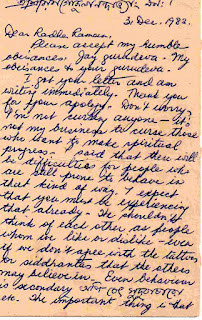 3. Dec. 1982.
Dear Radha Raman,
Please accept my humble
obeisances. Jay gurudeva. My
obeisances to your gurudeva.
I got your letter and am
writing immediately. Thank you
for your apology. Don't worry
I'm not cursing anyone - it's
not my business to curse those
who want to make spiritual
progress. I said that there will
be difficulties for people who
are still prone to behave in
that kind of way. I expect
that you must be experiencing
that already. We shouldn't
think of each other as people
whom we like or dislike - even
if we don't agree with the
or siddhantas that the others
may believe in. Even behaviour
is secondary
etc. The important thing is that